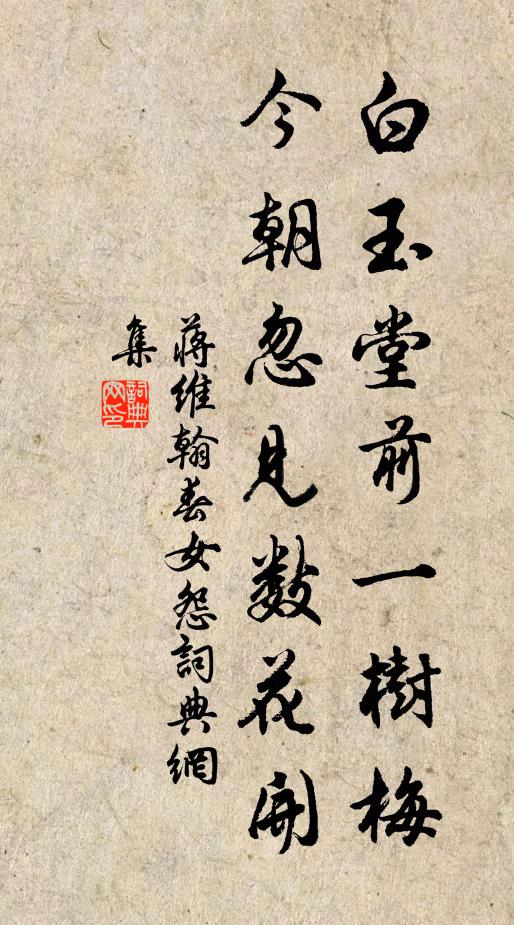 白玉堂前一樹梅
今朝忽見數花開
蔣維翰春女怨詞典網
集
詞典
網印